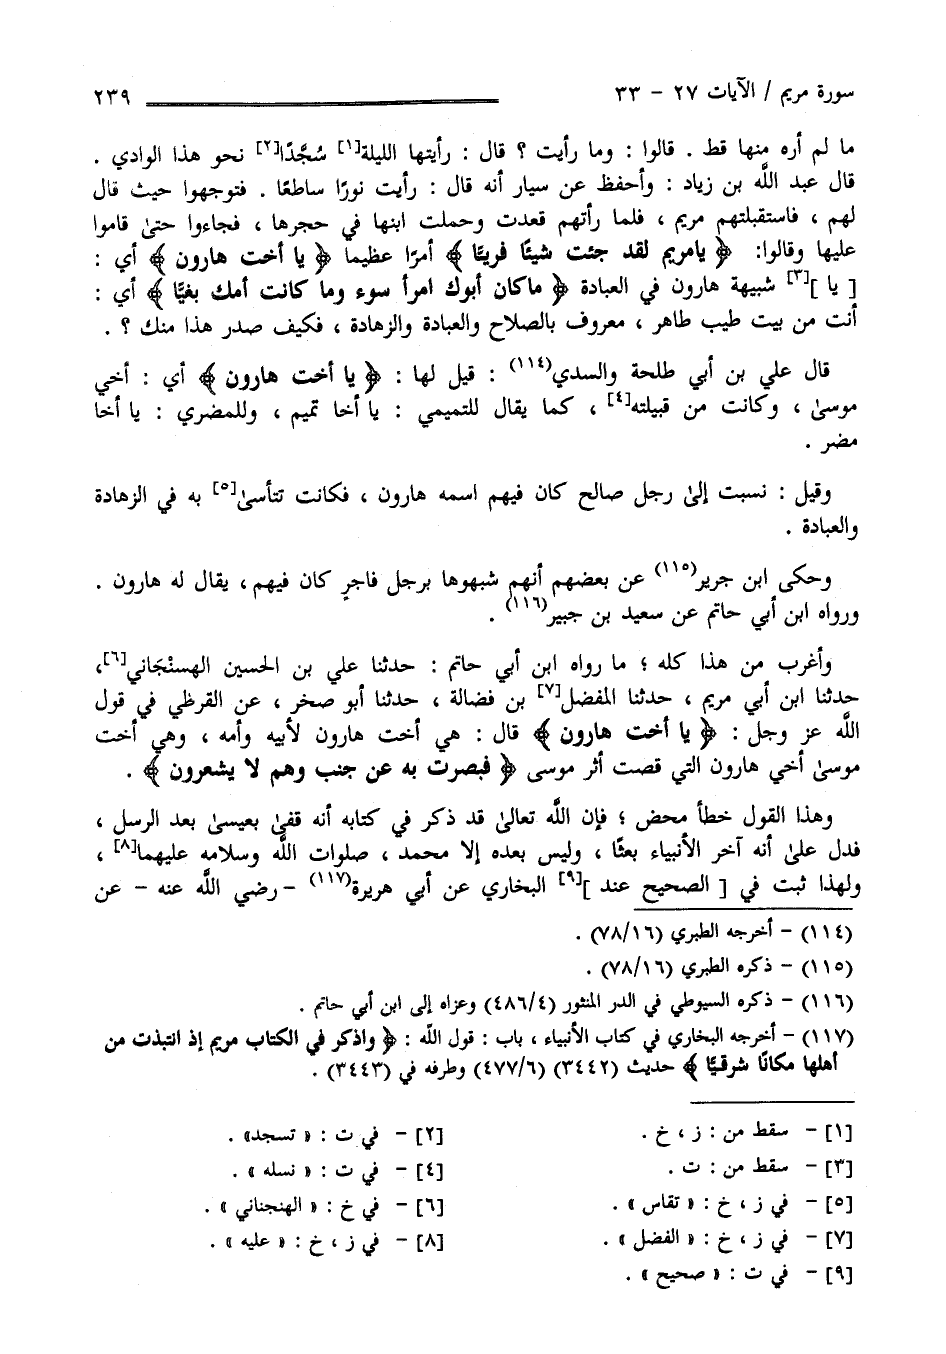 سورة مريم / الآيات ٢٧ - ٣٣ ٢٣٩
ما لم أره منها قط . قالوا : وما رأيت ؟ قال : رأيتها الليلة[١] سُجَّدًا[٢] نحو هذا الوادي .
قال عبد اللَّه بن زياد : وأحفظ عن سيار أنه قال : رأيت نورًا ساطعًا . فتوجهوا حيث قال
لهم ، فاستقبلتهم مريم ، فلما رأتهم قعدت وحملت ابنها في حجرها ، فجاءوا حتىٰ قاموا
عليها وقالوا: ﴿ يامريم لقد جئت شيئًا فريًّا ﴾ أمرًا عظيما ﴿ يا أخت هارون ﴾ أي :
[ يا ][٣] شبيهة هارون في العبادة ﴿ ماكان أبوك امرأ سوء وما كانت أمك بغيًّا ﴾ أي :
أنت من بيت طيب طاهر ، معروف بالصلاح والعبادة والزهادة ، فكيف صدر هذا منك ؟ .
قال علي بن أبي طلحة والسدي(١١٤) : قيل لها : ﴿ يا أخت هارون ﴾ أي : أخي
موسىٰ ، وكانت من قبيلته[٤] ، كما يقال للتميمي : يا أخا تميم ، وللمضري : يا أخا
مضر .
وقيل : نسبت إلىٰ رجل صالح كان فيهم اسمه هارون ، فكانت تتأسىٰ[٥] به في الزهادة
والعبادة .
وحكى ابن جرير(١١٥) عن بعضهم أنهم شبهوها برجل فاجرٍ كان فيهم ، يقال له هارون .
ورواه ابن أبي حاتم عن سعيد بن جبير(١١٦) .
وأغرب من هذا كله ؛ ما رواه ابن أبي حاتم : حدثنا علي بن الحسين الهسنْجَاني[٦]،
حدثنا ابن أبي مريم ، حدثنا المفضل[٧] بن فضالة ، حدثنا أبو صخر ، عن القرظي في قول
اللَّه عز وجل : ﴿ يا أخت هارون ﴾ قال : هي أخت هارون لأبيه وأمه ، وهي أخت
موسىٰ أخي هارون التي قصت أثر موسى ﴿ فبصرت به عن جنب وهم لا يشعرون ﴾ .
وهذا القول خطأ محض ؛ فإن اللَّه تعالىٰ قد ذكر في كتابه أنه قفىٰ بعيسىٰ بعد الرسل ،
فدل علىٰ أنه آخر الأنبياء بعثًا ، وليس بعده إلا محمد ، صلوات اللَّه وسلامه عليهما[٨] ،
ولهذا ثبت في [ الصحيح عند ][٩] البخاري عن أبي هريرة(١١٧) - رضي اللَّه عنه - عن
(١١٤) - أخرجه الطبري (٧٨/١٦) .
(١١٥) - ذكره الطبري (٧٨/١٦) .
(١١٦) - ذكره السيوطي في الدر المنثور (٤٨٦/٤) وعزاه إلى ابن أبي حاتم .
(١١٧) - أخرجه البخاري في كتاب الأنبياء ، باب : قول اللَّه : ﴿ واذكر في الكتاب مريم إذ انتبذت من
أهلها مكانًا شرقيًّا ﴾ حديث (٣٤٤٢) (٤٧٧/٦) وطرفه في (٣٤٤٣) .
[١] - سقط من : ز ، خ . [٢] - في ت : « تسجد» .
[٣] - سقط من : ت . [٤] - في ت : « نسله » .
[٥] - في ز ، خ : « تقاس » . [٦] - في خ : « الهنجناني » .
[٧] - في ز ، خ : « الفضل » . [٨] - في ز ، خ : « عليه » .
[٩] - في ت : « صحيح » .